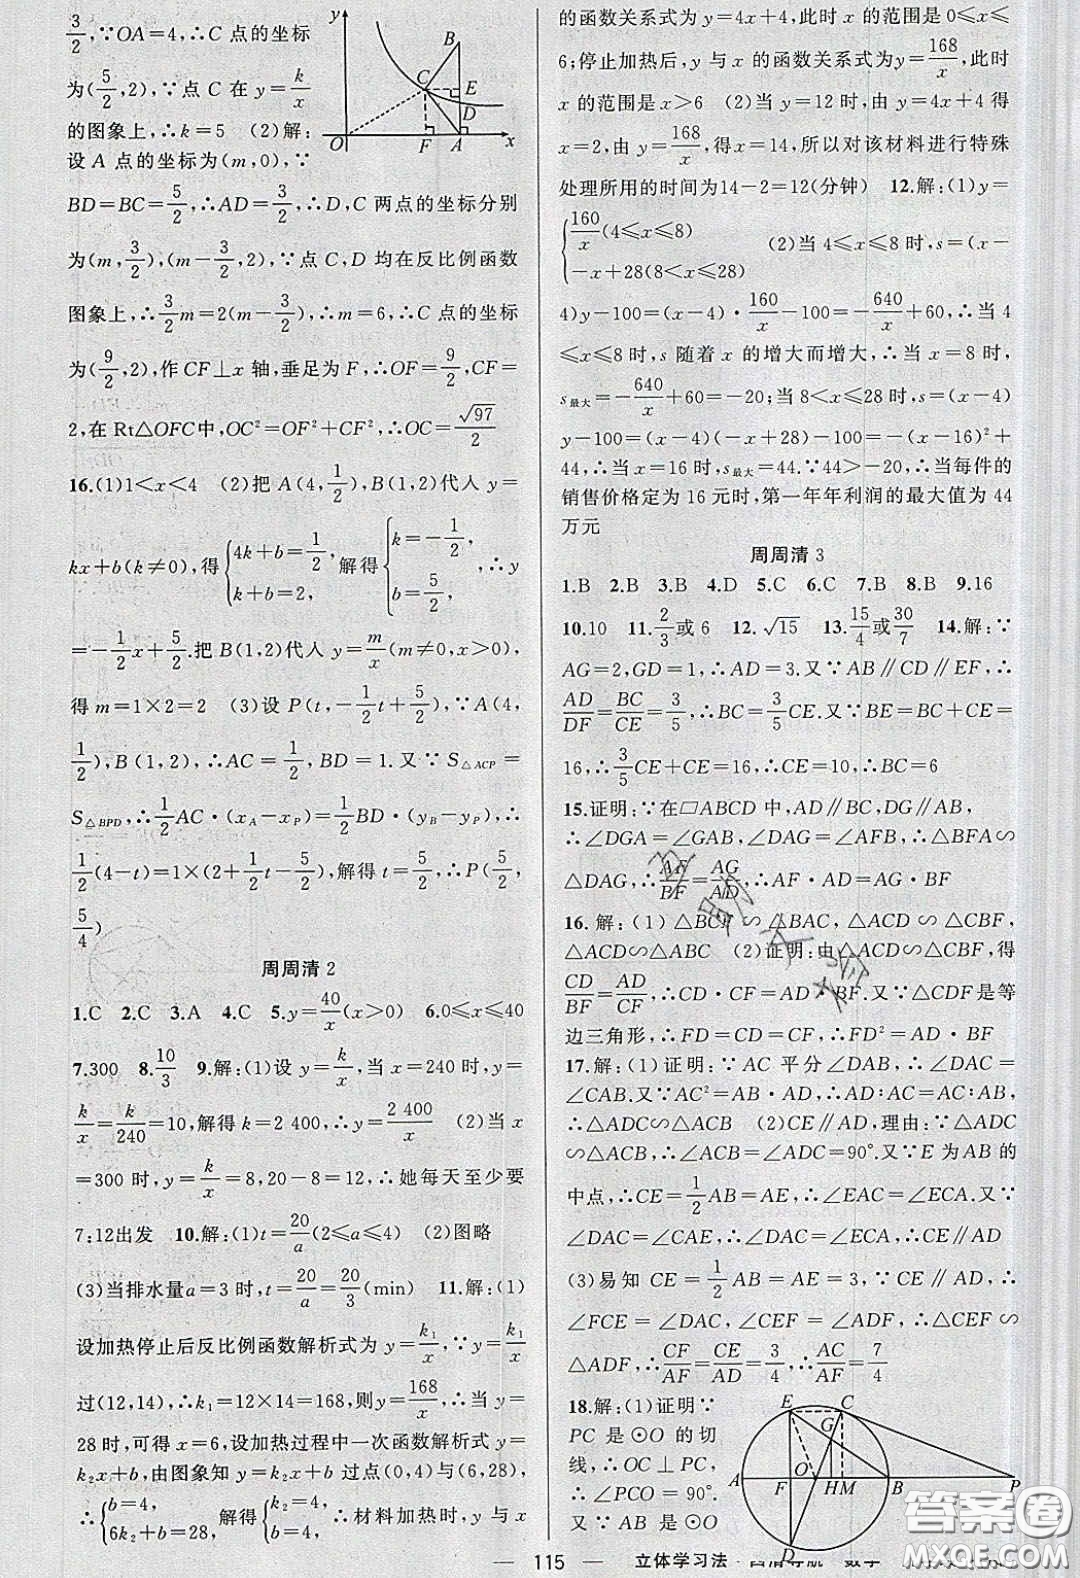 3/2,∵OA=4,∴C 点的坐标
为(5/2,2),∵点 C 在 y=k/x
的图象上,∴k=5 (2)解:
设 A 点的坐标为(m,0),∵
BD=BC=5/2,∴AD=3/2,∴D,C 两点的坐标分别
为(m,3/2),(m-3/2,2),∵点 C,D 均在反比例函数
图象上,∴3/2m=2(m-3/2),∴m=6,∴C 点的坐标
为(9/2,2),作 CF⊥x 轴,垂足为 F,∴OF=9/2,CF=
2,在 Rt△OFC中,OC²=OF²+CF²,∴OC=√97/2
16.(1)1<x<4 (2)把 A(4,1/2),B(1,2)代人 y=
kx+b(k≠0),得{4k+b=1/2, k+b=2, 解得{k=-1/2, b=5/2, ∴y
=-1/2x+5/2.把 B(1,2)代人 y=m/x(m≠0,x>0),
得 m=1×2=2 (3)设 P(t,-1/2t+5/2),∵A(4,
1/2),B(1,2),∴AC=1/2,BD=1.又∵S△ACP=
S△BPD,∴1/2AC·(xA-xP)=1/2BD·(yB-yP),∴
1/2(4-t)=1×(2+1/2t-5/2),解得 t=5/2,∴P(5/2,
5/4)
周周清 2
1.C 2.C 3.A 4.C 5.y=40/x(x>0) 6.0≤x≤40
7.300 8.10/3 9.解:(1)设 y=k/x,当 x=240 时,y=
k/x=k/240=10,解得 k=2 400,∴y=2 400/x (2)当 x
=300 时,y=k/x=8,20-8=12,∴她每天至少要
7:12出发 10.解:(1)t=20/a(2≤a≤4) (2)图略
(3)当排水量a=3时,t=20/a=20/3(min) 11.解:(1)
设加热停止后反比例函数解析式为 y=k₁/x,∵y=k₁/x
过(12,14),∴k₁=12×14=168,则y=168/x,∴当 y=
28 时,可得 x=6,设加热过程中一次函数解析式 y=
k₂x+b,由图象知 y=k₂x+b 过点(0,4)与(6,28),
∴{b=4, 6k₂+b=28, 解得{k₂=4, b=4, ∴材料加热时,y 与 x
y
B
C
E
D
O
F
A
x
的函数关系式为 y=4x+4,此时 x 的范围是 0≤x≤
6;停止加热后,y 与 x 的函数关系式为y=168/x,此时
x 的范围是 x>6 (2)当 y=12 时,由 y=4x+4 得
x=2,由 y=168/x,得 x=14,所以对该材料进行特殊
处理所用的时间为14-2=12(分钟) 12.解:(1)y=
{160/x(4≤x≤8) -x+28(8<x≤28) (2)当 4≤x≤8 时,s=(x-
4)y-100=(x-4)·160/x-100=-640/x+60,∴当 4
≤x≤8 时,s 随着 x 的增大而增大,∴当 x=8 时,
s最大=-640/x+60=-20;当 8<x≤28 时,s=(x-4)
y-100=(x-4)(-x+28)-100=-(x-16)²+
44,∴当 x=16 时,s最大=44.∵44>-20,∴当每件的
销售价格定为 16 元时,第一年年利润的最大值为 44
万元
周周清 3
1.B 2.B 3.B 4.D 5.C 6.C 7.B 8.B 9.16
10.10 11.2/3或 6 12.√15 13.15/4或30/7 14.解:∵
AG=2,GD=1,∴AD=3.又∵AB∥CD∥EF,∴
AD/DF=BC/CE=3/5,∴BC=3/5CE.又∵BE=BC+CE=
16,∴3/5CE+CE=16,∴CE=10,∴BC=6
15.证明:∵在▱ABCD 中,AD∥BC,DG∥AB,
∴∠DGA=∠GAB,∠DAG=∠AFB,∴△BFA∽
△DAG,∴AF/BF=AG/AD,∴AF·AD=AG·BF
16.解:(1)△BCF∽△BAC,△ACD∽△CBF,
△ACD∽△ABC (2)证明:由△ACD∽△CBF,得
CD/BF=AD/CF,∴CD·CF=AD·BF.又∵△CDF是等
边三角形,∴FD=CD=CF,∴FD²=AD·BF
17.解:(1)证明:∵AC 平分∠DAB,∴∠DAC=
∠CAB.又∵AC²=AB·AD,∴AD:AC=AC:AB,
∴△ADC∽△ACB (2)CE∥AD,理由:∵△ADC
∽△ACB,∴∠ACB=∠ADC=90°.又∵E 为 AB 的
中点,∴CE=1/2AB=AE,∴∠EAC=∠ECA.又∵
∠DAC=∠CAE,∴∠DAC=∠ECA,∴CE∥AD
(3)易知 CE=1/2AB=AE=3,∵CE∥AD,∴
∠FCE=∠DAC,∠CEF=∠ADF,∴△CEF∽
△ADF,∴CF/AF=CE/AD=3/4,∴AC/AF=7/4
18.解:(1)证明∵
PC 是⊙O 的切
线,∴OC⊥PC,
∴∠PCO=90°.
又∵AB 是⊙O
E
C
G
A
F
O
H
M
B
P
D
115
立体学习法
答案圈
MXQE.COM